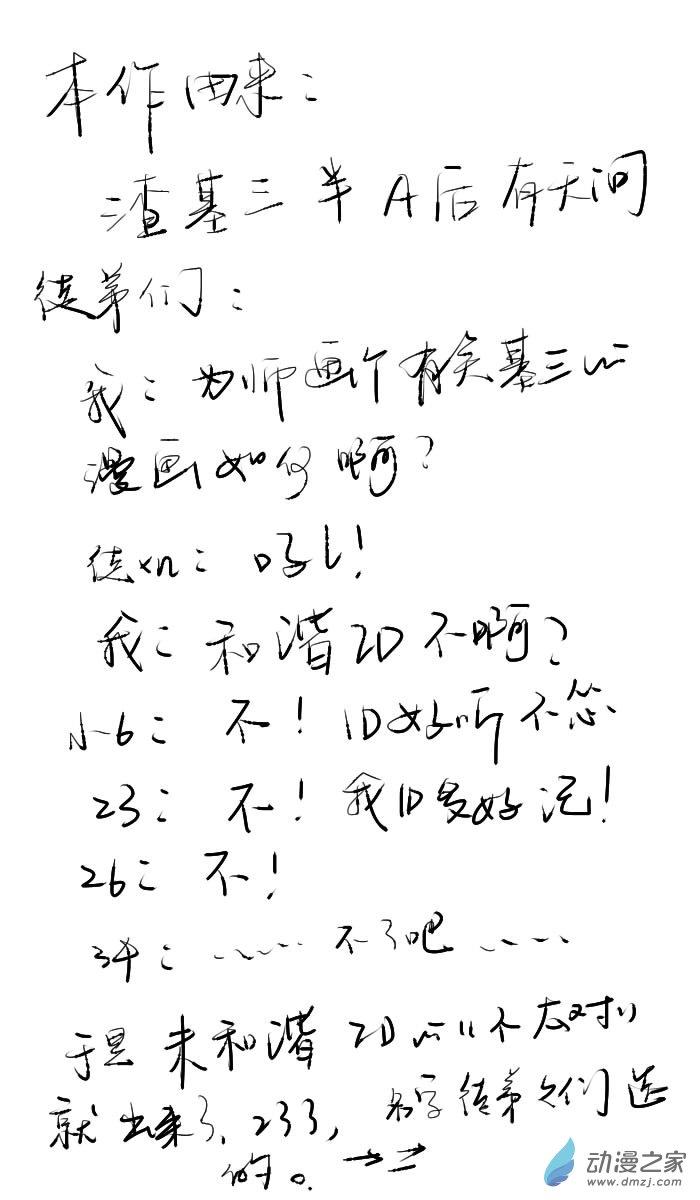 本作由来：
渣基三半A后有天问
徒弟们：
我：为师画个有关基三的
漫画如何啊？
徒们：好！
我：和谐ID不啊？
小6：不！ID好听不怂
23：不！我ID多好记！
26：不！
34：……不了吧……
于是未和谐ID的不太对
就出来了，233，名字徒弟们选
的。→→
动漫之家
www.dmzj.com